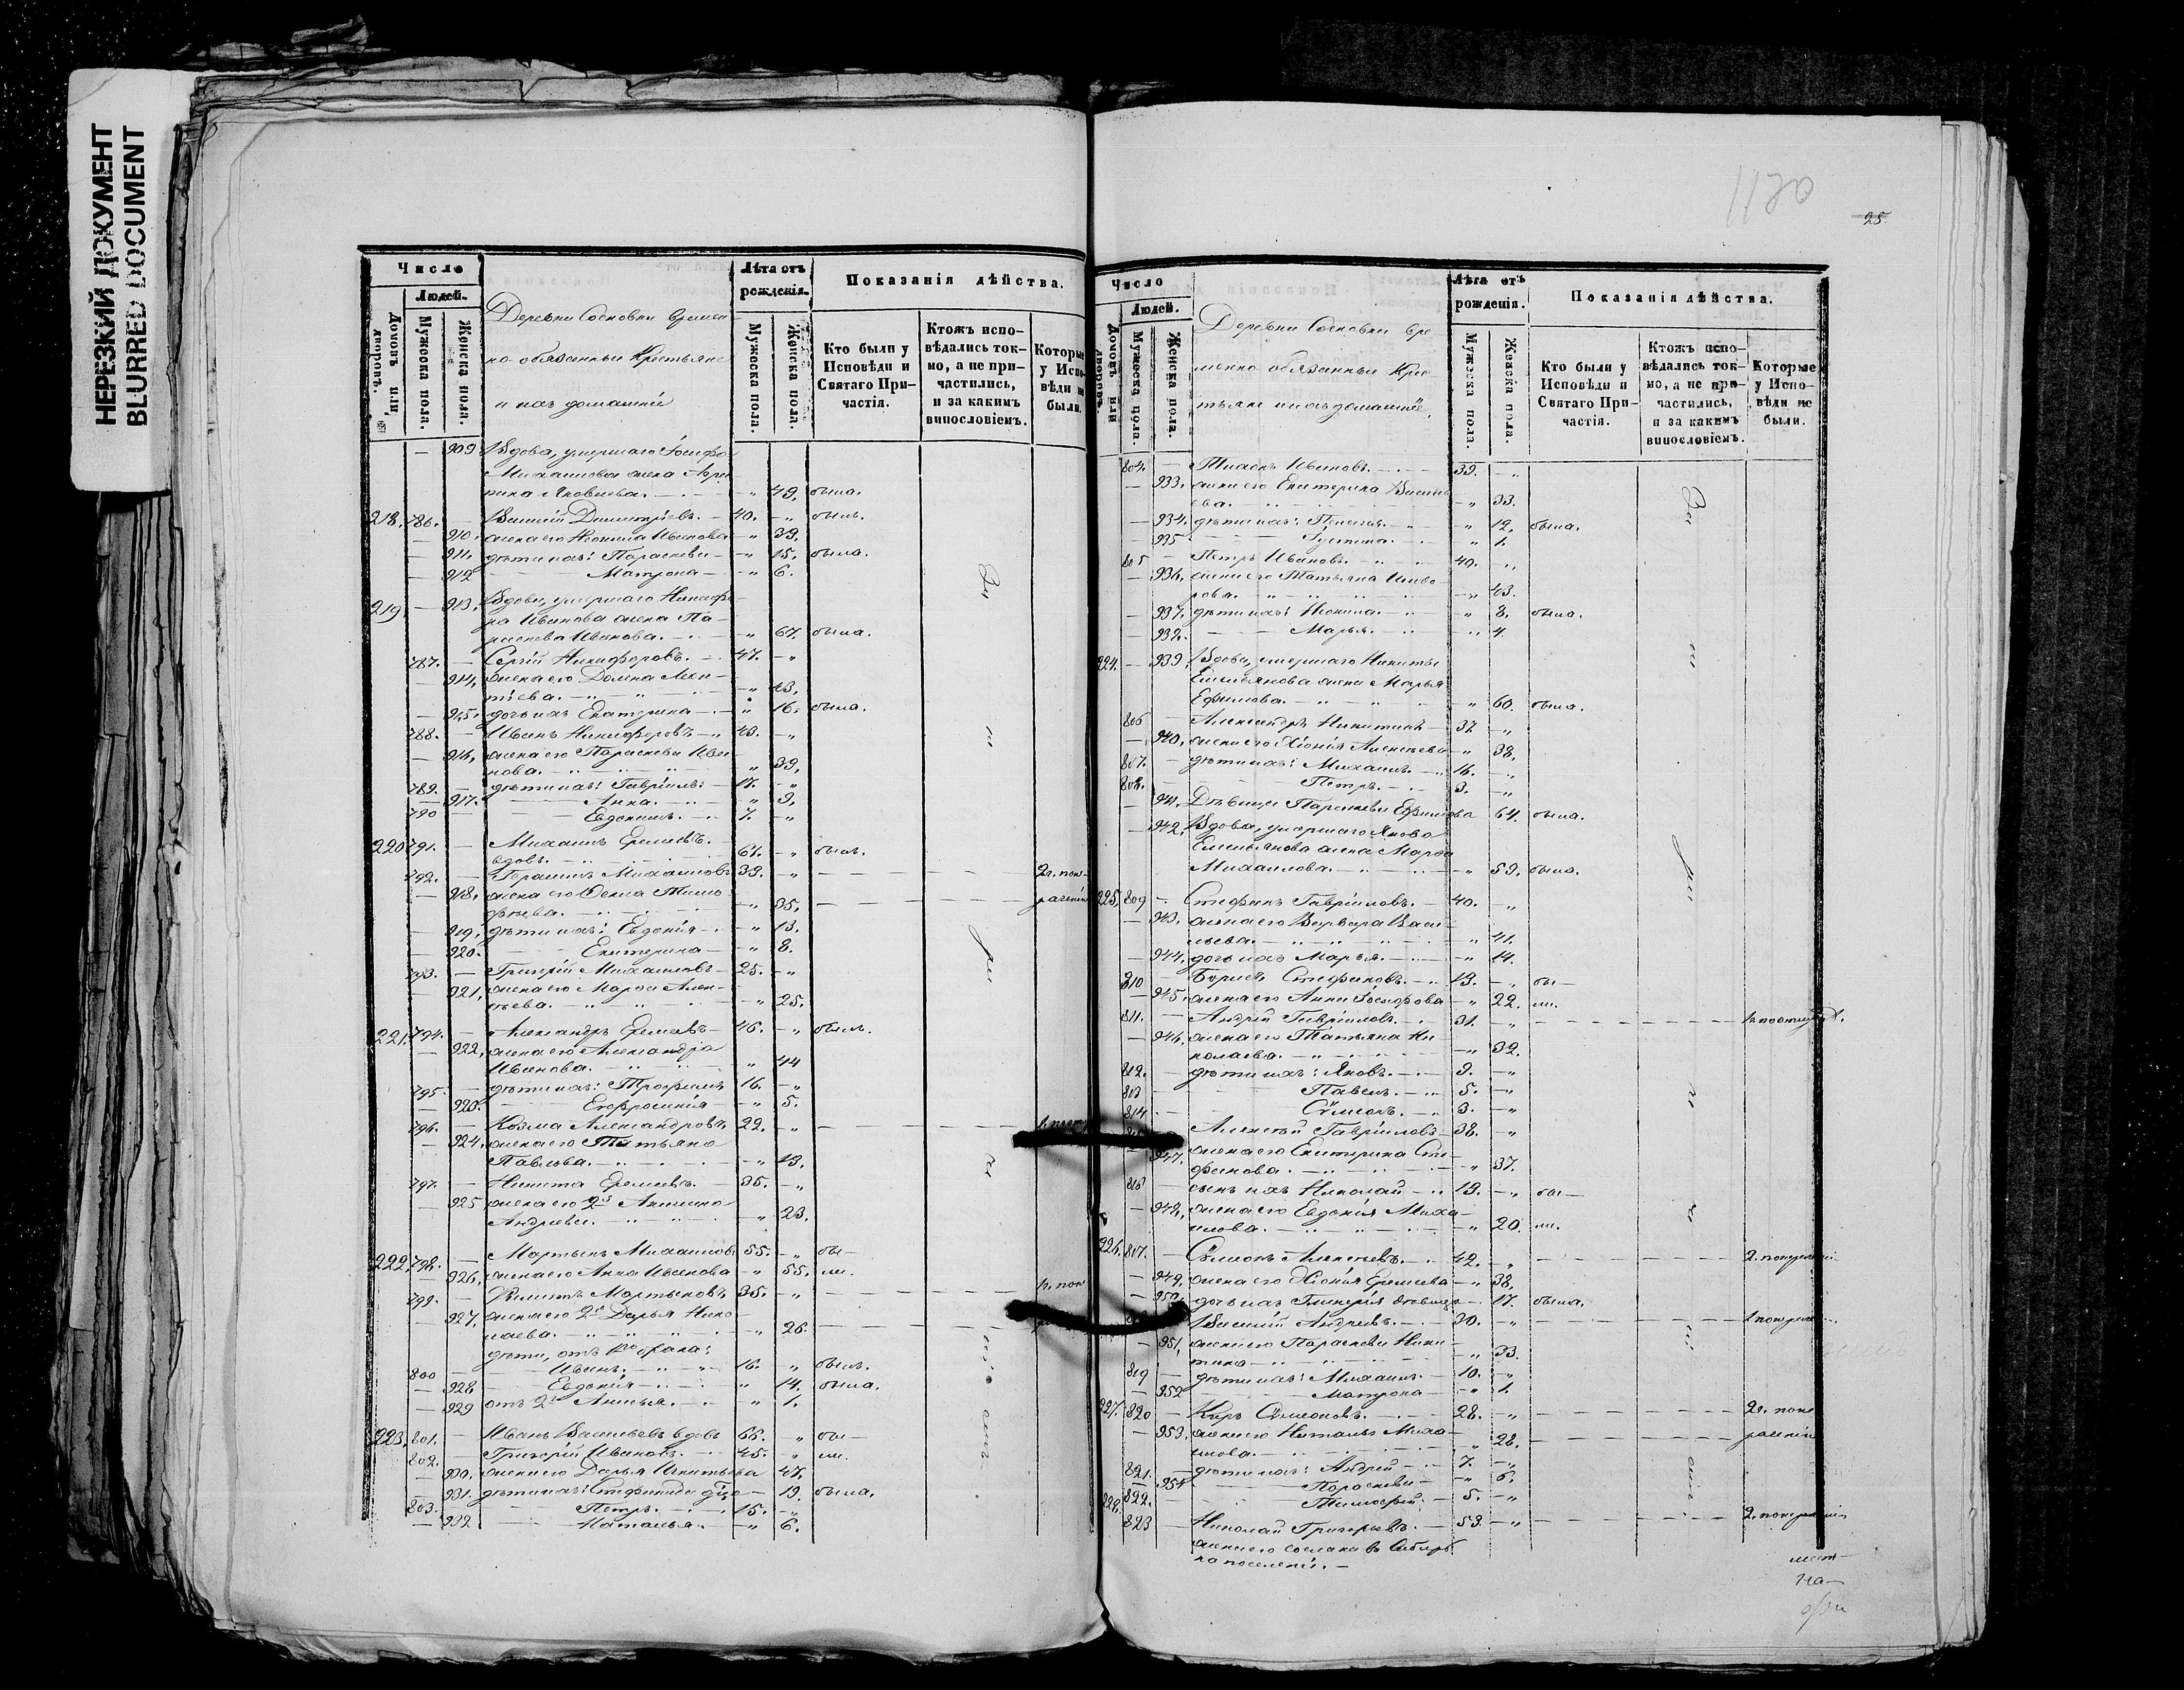 НЕРЕЗКИЙ ДОКУМЕНТ
BLURRED DOCUMENT
1120
25.
Число
Людей.
Домовъ или дворовъ.
Мужеска пола.
Женска пола.
Деревни Сосновки времен
но обязанные Крестьяне
и ихъ домашніе
Лѣта отъ рожденія.
Мужеска пола.
Женска пола.
Показанія дѣйства.
Кто были у Исповѣди и Святаго Причастія.
Ктожъ исповѣдались токмо, а не причастились, и за какимъ винословіемъ.
Которые у Исповѣди не были.
— 909. Вдова, умершаго Іосифа
Михаилова жена Агри
пина Яковлева. — „ 49. была.
218. 786. — Василій Димитріевъ. — 40. — „ былъ.
— 910. жена его Неонила Иванова — „ 39.
— 911. дѣти ихъ: Параскева — „ 15. была.
— 912 — Матрона — „ 6.
219. — 913. Вдова, умершаго Никифо
ра Иванова жена Па-
раскева Иванова. — „ 67. была.
787. — Сергій Никифоровъ. — 47. — „
— 914. жена его Домна Леон-
тіева. — „ 43.
— 915. дочь ихъ Екатерина — „ 16. была.
788. — Иванъ Никифоровъ — 43. — „
— 916. жена его Параскева Ива
нова. — „ 39.
789. — дѣти ихъ: Гавріилъ 17. — „
— 917. — Анна. — „ 3.
790 — Евдокимъ. — 7. — „
220 791. — Михаилъ Еремѣевъ.
вдовъ. — 61. — „ былъ.
792. — Герасимъ Михаиловъ 39. — „ — 2. по не-
— 918. жена его Ѳекла Тимо-
ѳеева. — „ 35. — раченію
— 919. дѣти ихъ: Евдокія — „ 13.
— 920. — Екатерина — „ 8.
793. — Григорій Михаиловъ — 25. — „
— 921. жена его Марѳа Алек-
сѣева. — „ 25.
221. 794. — Александръ Еремѣевъ — 46. — „ былъ.
— 922. жена его Александра
Иванова. — „ 44
795. — дѣти ихъ: Трофимъ 16. — „
— 923. — Евфросинія — „ 5.
796. — Козма Александровъ 22. — „
— 924. жена его Татьяна
Павлова. — „ 23.
797. — Никита Еремѣевъ. — 35. — „
— 925 жена его 2я Акилина
Андреева. — „ 23.
222. 798. — Мартынъ Михаиловъ 55. — „ бы-
— 926. жена его Анна Иванова — „ 55. ли.
799. — Филиппъ Мартыновъ 35. — „
— 927. жена его 2я Дарья Нико-
лаева. — „ 26.
дѣти, отъ 1го брака:
800 — Иванъ. — 16. „ былъ.
— 928 — Евдокія — „ 14. была.
— 929 отъ 2го Анисья. — „ 1.
223. 801. — Иванъ Васильевъ вдовъ 66. „ бы-
802. — Григорій Ивановъ. — 45. „ ли.
— 930. жена его Дарья Игнатьева 47.
— 931. дѣти ихъ: Стефанида — 19. была.
803. — Петръ. — 15. — „
— 932 — Наталья. — „ 6.
Число
Людей.
Домовъ или дворовъ.
Мужеска пола.
Женска пола.
Деревни Сосновки вре
менно обязанные Крес
тьяне и ихъ домашніе,
Лѣта отъ рожденія.
Мужеска пола.
Женска пола.
Показанія дѣйства.
Кто были у Исповѣди и Святаго Причастія.
Ктожъ исповѣдались токмо, а не причастились, и за какимъ винословіемъ.
Которые у Исповѣди не были.
804. — Тихонъ Ивановъ. — 39. — „
— 933. жена его Екатерина Василь
ева. — „ 33.
— 934. дѣти ихъ: Пелагія. „ 12. была.
— 935 — Густина. — „ 1.
805 — Петръ Ивановъ. — 40. „
— 936. жена его Татьяна
рова. — „ 43.
— 937. дѣти ихъ: Неонила. „ 8. была.
— 938. — Марья. — „ 4.
224. — 939. Вдова, умершаго Никиты
Емельянова жена Марья
Ефимова. — „ 60. была.
806 — Александръ Никитинъ — 37 — „
— 940. жена его Хіонія Алексѣева — „ 38.
807. — дѣти ихъ: Михаилъ. — 16. — „
808. — Петръ. — 3. — „
— 941. Дѣвица Параскева Ефимова 64. была.
— 942. Вдова, умершаго Якова
Емельянова жена Марѳа
Михаилова. — „ 59. была.
225. 809 — Стефанъ Гавріиловъ. — 40. — „
— 943. жена его Варвара Васи-
льева. — „ 41.
— 944. дочь ихъ Марья. — „ 14.
810 — Борисъ Стефановъ. — 19. — „ бы-
— 945. жена его Анна Іосифова — „ 22. ли.
811. — Андрей Гавріиловъ. — 31. — „
— 946. жена его Татьяна Ни-
колаева. — „ 32.
812. — дѣти ихъ: Яковъ. — 9. — „
813 — Павелъ. — 5. — „
814 — Сѵмеонъ. — 3. — „
Алексѣй Гавріиловъ — 38. — „
947. жена его Екатерина Сте-
фанова. — „ 37.
816 — сынъ ихъ Николай — 19. — „ бы-
— 948. жена его Евдокія Миха-
илова. — „ 20. ли.
226. 817. — Сѵмеонъ Алексѣевъ. — 42. — „ — 2. по нерадѣнію
— 949. жена его Хіонія Еремеева — „ 38.
— 950. дочь ихъ Гликерія дѣвица — 17. была.
Василій Андреевъ. — 30. — „
951. жена его Параскева Ники-
тина — „ 33.
819 — дѣти ихъ: Михаилъ. — 10. — „
— 952 — Матрона — „ 1.
227. 820 — Киръ Сѵмеоновъ. — 28. — „ — 2. по не
— 953. жена его Наталья Миха-
илова. — „ 28. — раченію
821. — дѣти ихъ: Андрей — 7. — „
— 954 — Параскева — „ 6.
822. — Тимоѳей. — 5. — „
228. 823 — Николай Григорьевъ. — 53. — „ — 2. по нерадѣнію
жена его сослана въ Сибирь
на поселеніе. —